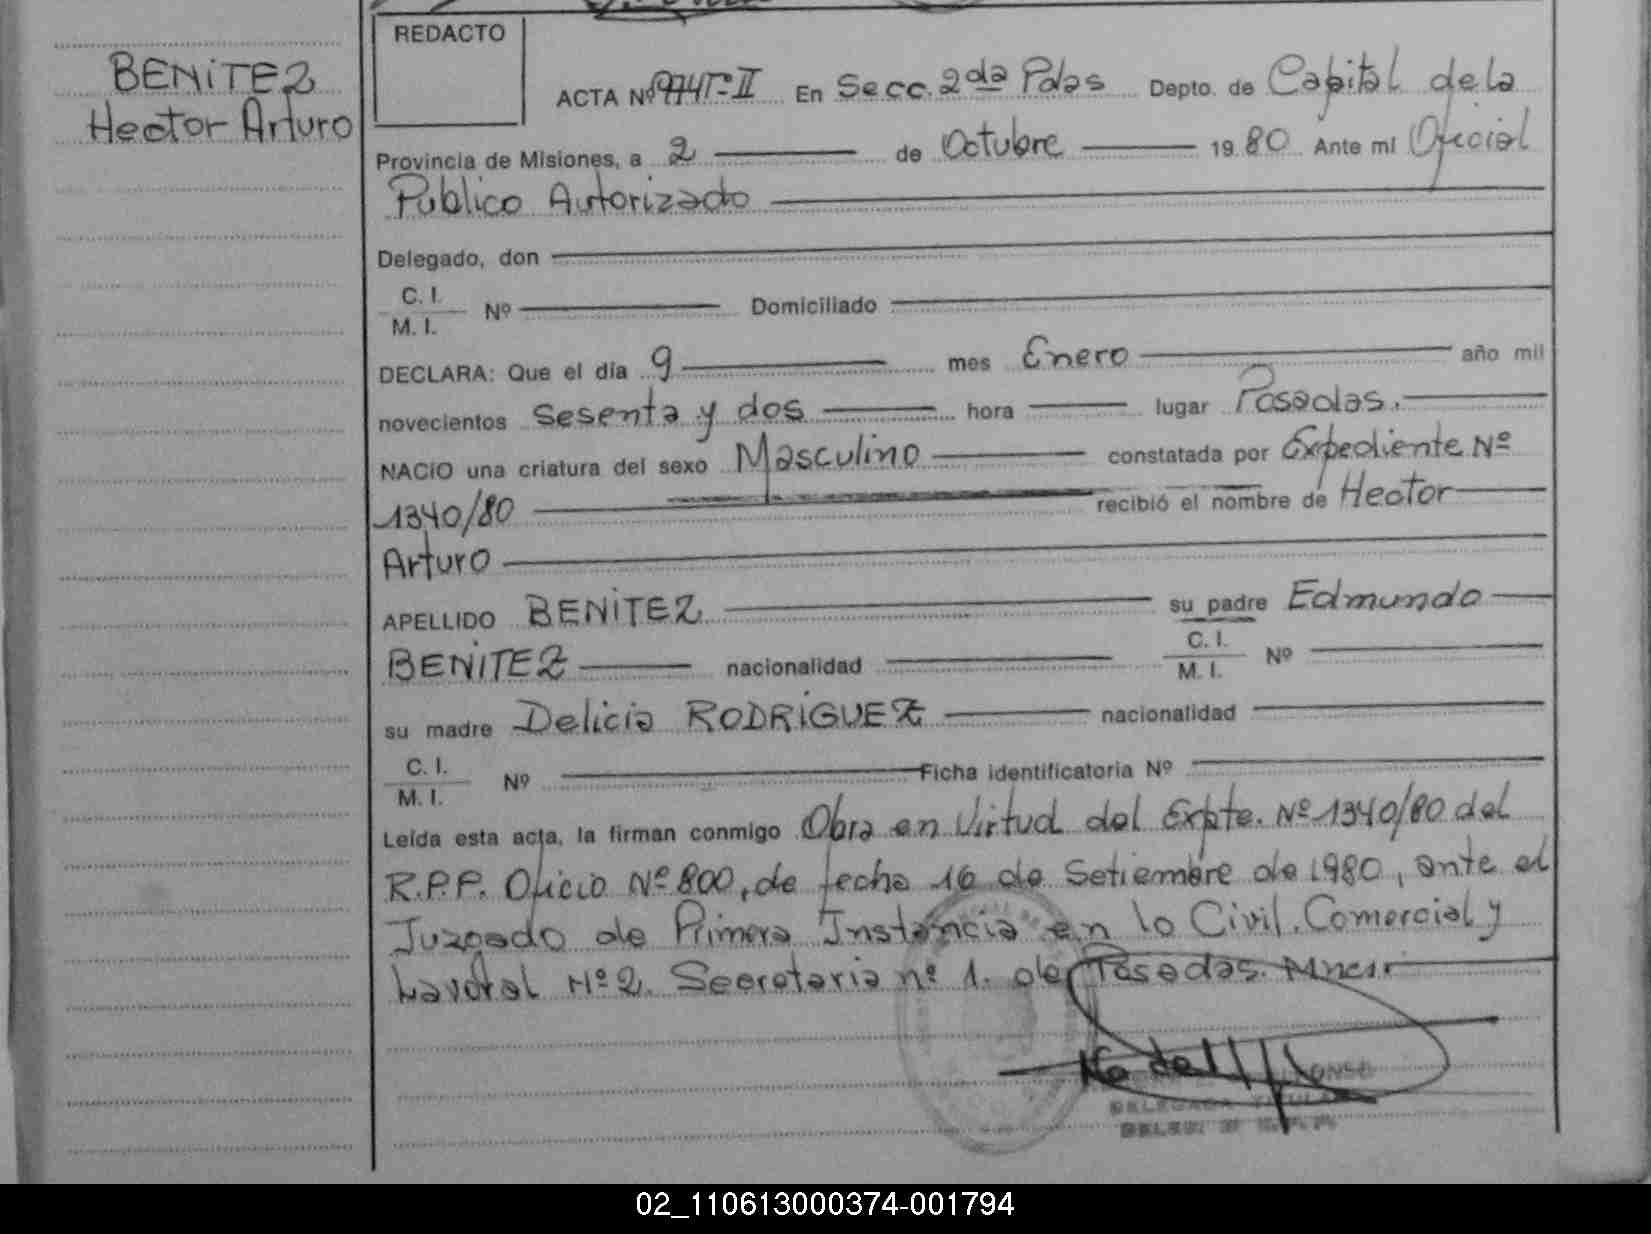 BENITEZ
Hector Arturo
REDACTO
ACTA Nº En Secc. 2da Pdas Depto. de Capital de la
Provincia de Misiones, a 2 de Octubre 1980 Ante mi Oficial
Público Autorizado
Delegado, don
C. I.
M. I. Nº Domiciliado
DECLARA: Que el día 9 mes Enero año mil
novecientos Sesenta y dos hora lugar Posadas.
NACIO una criatura del sexo Masculino constatada por Expediente Nº
1340/80 recibió el nombre de Hector
Arturo
APELLIDO BENITEZ su padre Edmundo
BENITEZ nacionalidad C. I.
M. I. Nº
su madre Delicia RODRIGUEZ nacionalidad
C. I.
M. I. Nº Ficha identificatoria Nº
Leída esta acta, la firman conmigo Obra en Virtud del Expte. Nº 1340/80 del
R.P.P. Oficio Nº 800, de fecha 16 de Setiembre de 1980, ante el
Juzgado de Primera Instancia en lo Civil, Comercial y
Nº 2. Secretaria nº 1. de Posadas. Mnes.
DELEGADA TITULAR
02_110613000374-001794